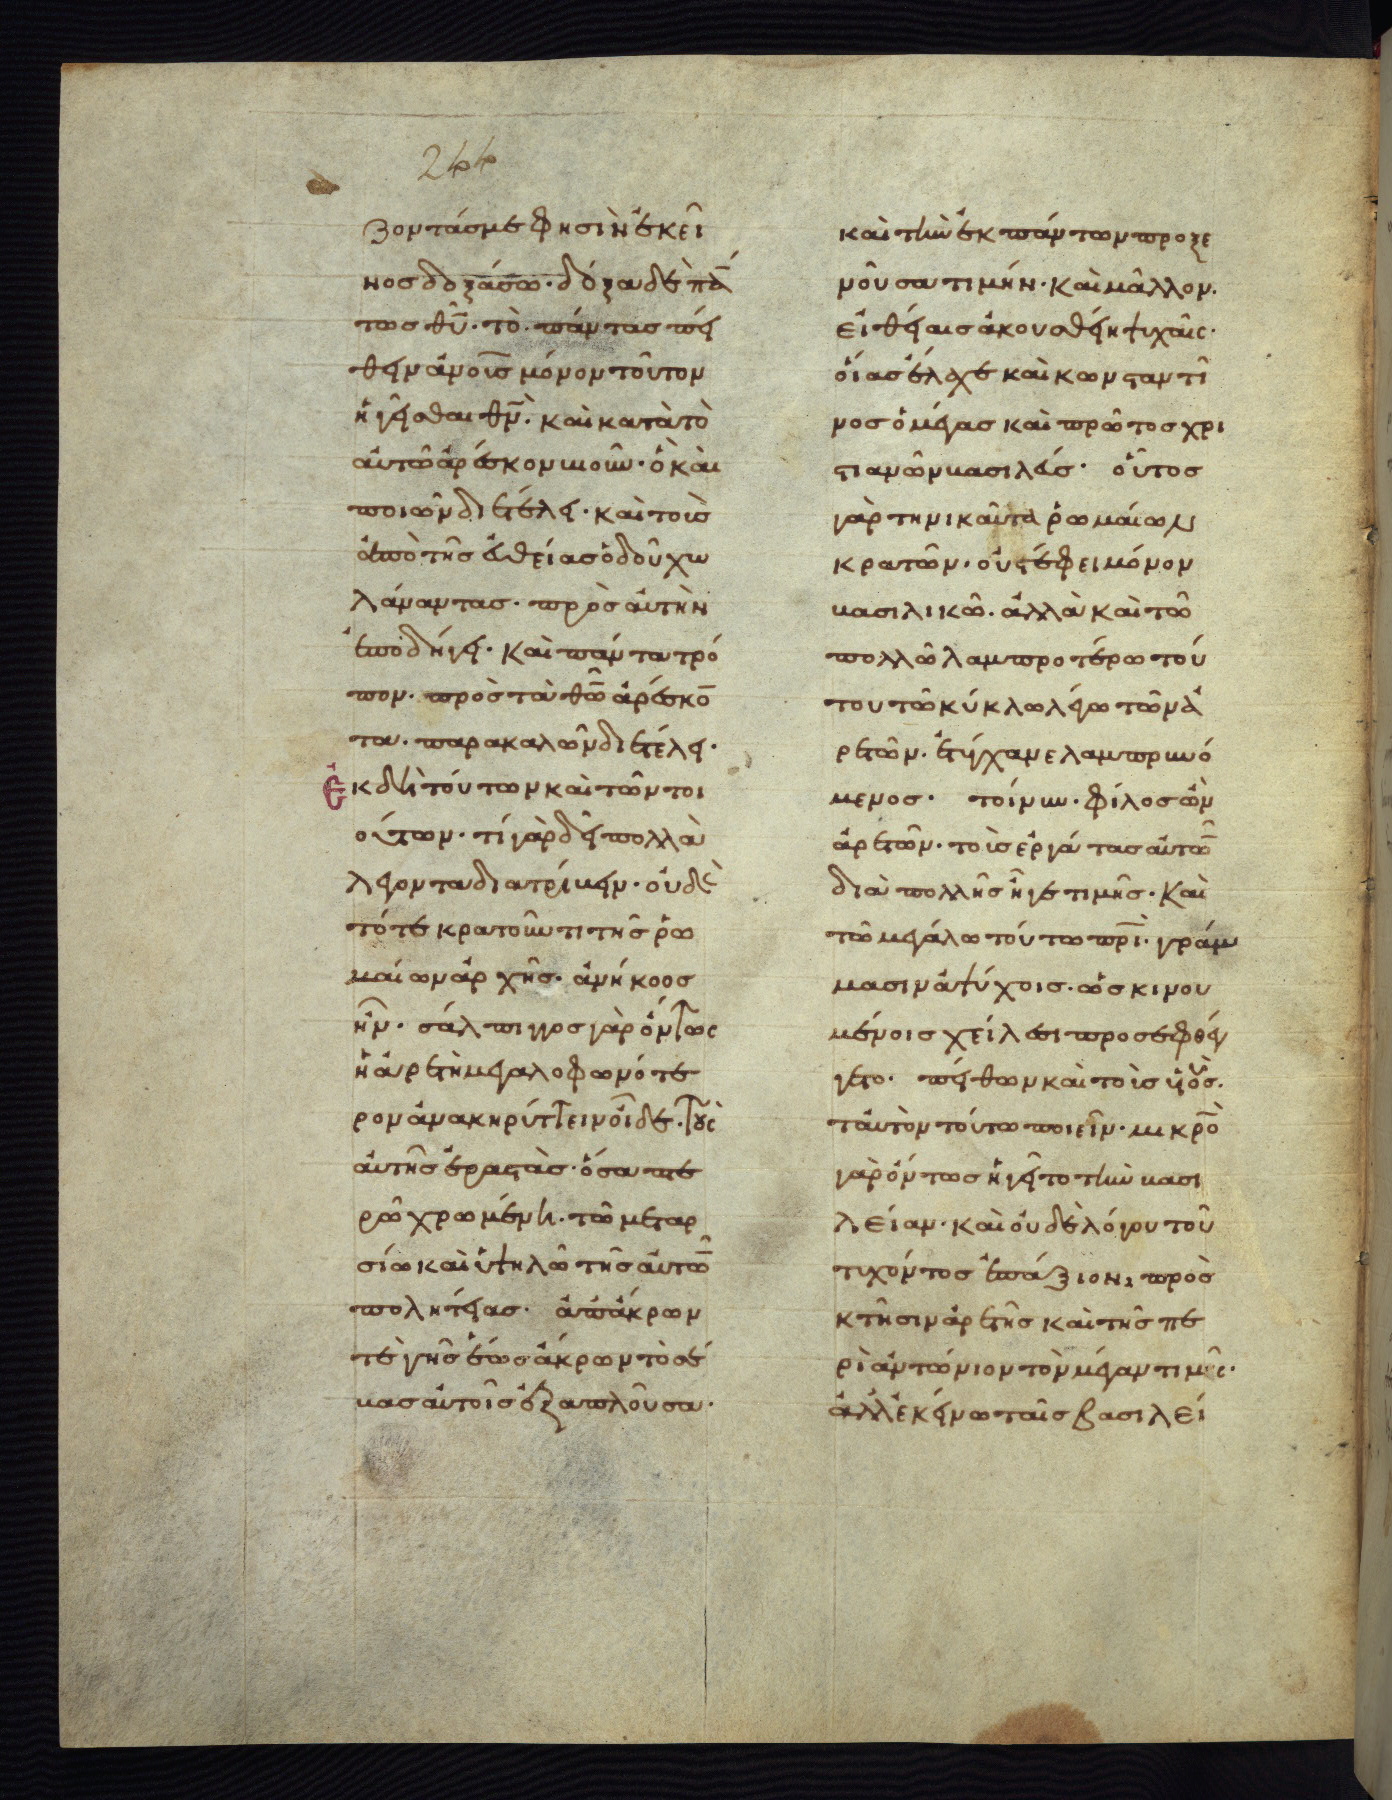 244
ζοντάς με φησὶν ἐκεῖ
νος δοξάσω· δόξα δὲ πά
τως θυ̅· τὸ πάντας πεί
θειν ἀνοῖς μόνον τοῦτον
ἡγεῖσθαι θν̅· καὶ κατὰ τὸ
αὐτῶ ἀρέσκον ζῆν· ὃ καὶ
ποιῶν διετέλει· καὶ τοὺς
ἀπὸ τῆς εὐθείας ὁδοῦ χω
λάναντας· πρὸς αὐτὴν
ἐποδήγει· καὶ πάντα τρό
πον· πρὸς τὰ θω̅ ἀρέσκο̅
τα· παρακαλῶν διετέλει·
Ἐκ δὴ τούτων καὶ τῶν τοι
ούτων· τί γὰρ δεῖ πολλὰ
λέγοντα διατρίβειν· οὐδὲ
τότε κρατοῦντι τῆς ῥω
μαίων ἀρχῆς· ἀνήκοος
ἦν· σάλπιγγος γὰρ ὄντως
ἡ ἀρετὴ μεγαλοφωνότε
ρον ἀνακηρύττειν οἶδε· τοὺς
αὐτῆς ἐραστὰς· ὅσα πτε
ρῶ χρωμένη· τῶ μεταρ
σίω καὶ ὑψηλῶ τῆς αὐτῶ̅
πολητείας· ἀπ' ἄκρων
τὲ γῆς ἕως ἄκρων τὸ σέ
βας αὐτοῖς ἐξαπλοῦσα·
καὶ τὴν ἐκ πάντων προξε
νοῦσα τιμήν· καὶ μᾶλλον·
εἰ θείαις ἀκουσθείη ψυχαῖς·
οἵας ἔλαχε καὶ κωνσταντῖ
νος ὁ μέγας καὶ πρῶτος χρι
στιανῶν βασιλεύς· οὗτος
γὰρ τηνικαῦτα ῥωμαίων
κρατῶν· οὐ στέφει μόνον
βασιλικῶ· ἀλλὰ καὶ τῶ
πολλῶ λαμπροτέρω τού
του τῶ κύκλω λέγω τῶν ἀ
ρετῶν· ἐτύγχανε λαμπρυνό
μενος· τοίνυν· φίλος ὢν
ἀρετῶν· τοὺς ἐργάτας αὐτῶ̅
διὰ πολλῆς ἦγε τιμῆς· καὶ
τῶ μεγάλω τούτω πρι̅· γράμ
μασιν ἀψύχοις· ὡς κινου
μένοις χείλεσι προσεφθέγ
γετο· πείθων καὶ τοὺς υἱοὺς·
ταὐτὸν τούτω ποιεῖν· μικρο̅
γὰρ ὄντως ἡγεῖτο τὴν βασι
λείαν· καὶ οὐδὲ λόγου τοῦ
τυχόντος ἐπάξιον, πρὸς
κτῆσιν ἀρετῆς καὶ τῆς πε
ρὶ ἀντώνιον τὸν μέγαν τιμῆς·
ἀλλ' ἐκείνω ταῖς βασιλεί